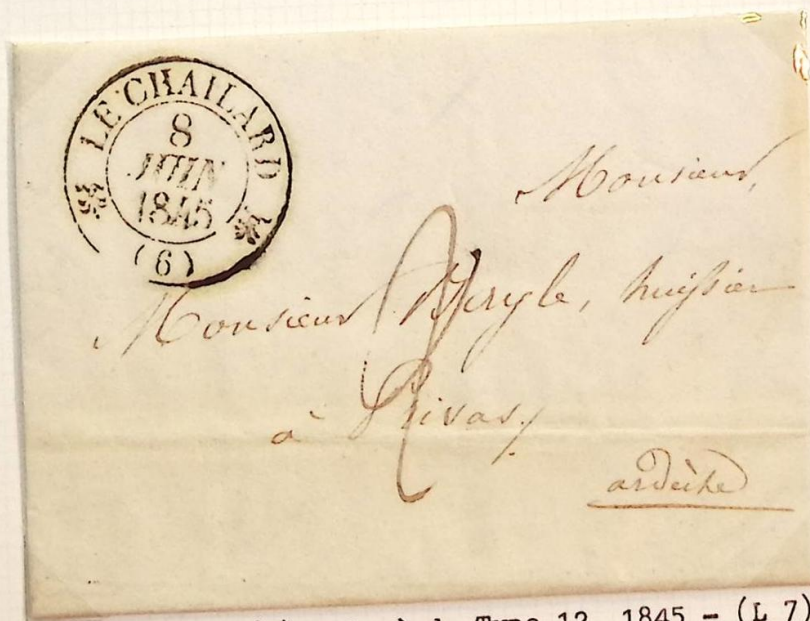 LE CHAILARD
8
JUIN
1845
(6)
Monsieur,
Monsieur huissier
à Privas
ardèche
Type 12 1845 - (L 7)